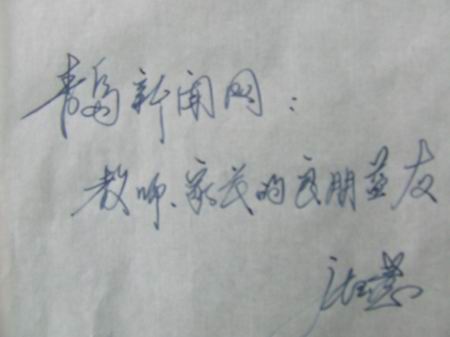 青岛新闻网：
教师、家长的良朋益友